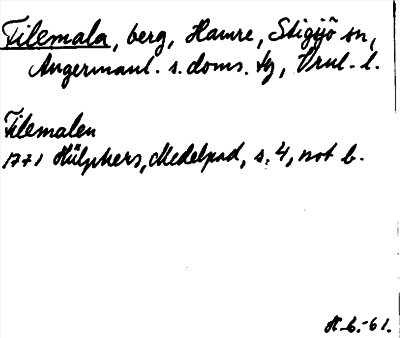 Filemala, berg, Hamre, Stigsjö sn,
Ångermanl. s. doms. tg, Vnl. l.
Filemalen
1771 Hülphers, Medelpad, s. 4, not b.
H. G. -61.